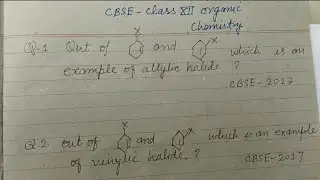 CBSE - Class XII organic
Chemistry
X X
Q.1 Out of and which is an
example of allylic halide ?
CBSE-2017
X X
Q.2. out of and which is an example
of vinylic halide. ?
CBSE-2017